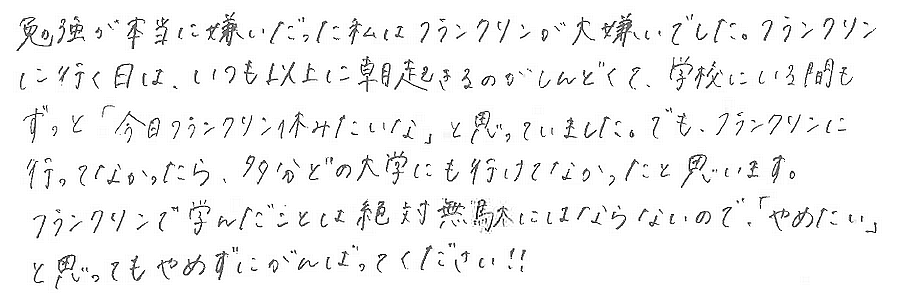 勉強が本当に嫌いだった私はフランクリンが大嫌いでした。フランクリン
に行く日は、いつも以上に朝起きるのがしんどくて、学校にいる間も
ずっと「今日フランクリン休みたいな」と思っていました。でも、フランクリンに
行ってなかったら、多分どの大学にも行けてなかったと思います。
フランクリンで学んだことは絶対無駄にはならないので、「やめたい」
と思ってもやめずにがんばってください!!